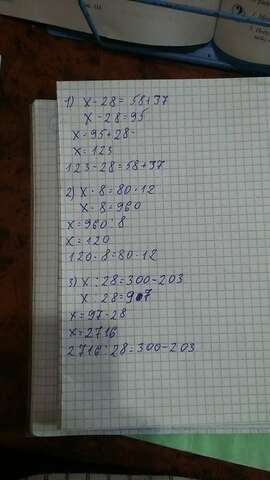 1) x - 28 = 58 + 37
x - 28 = 95
x = 95 + 28
x = 123
123 - 28 = 58 + 37
2) x · 8 = 80 · 12
x · 8 = 960
x = 960 : 8
x = 120
120 · 8 = 80 · 12
3) x : 28 = 300 - 203
x : 28 = 97
x = 97 · 28
x = 2716
2716 : 28 = 300 - 203